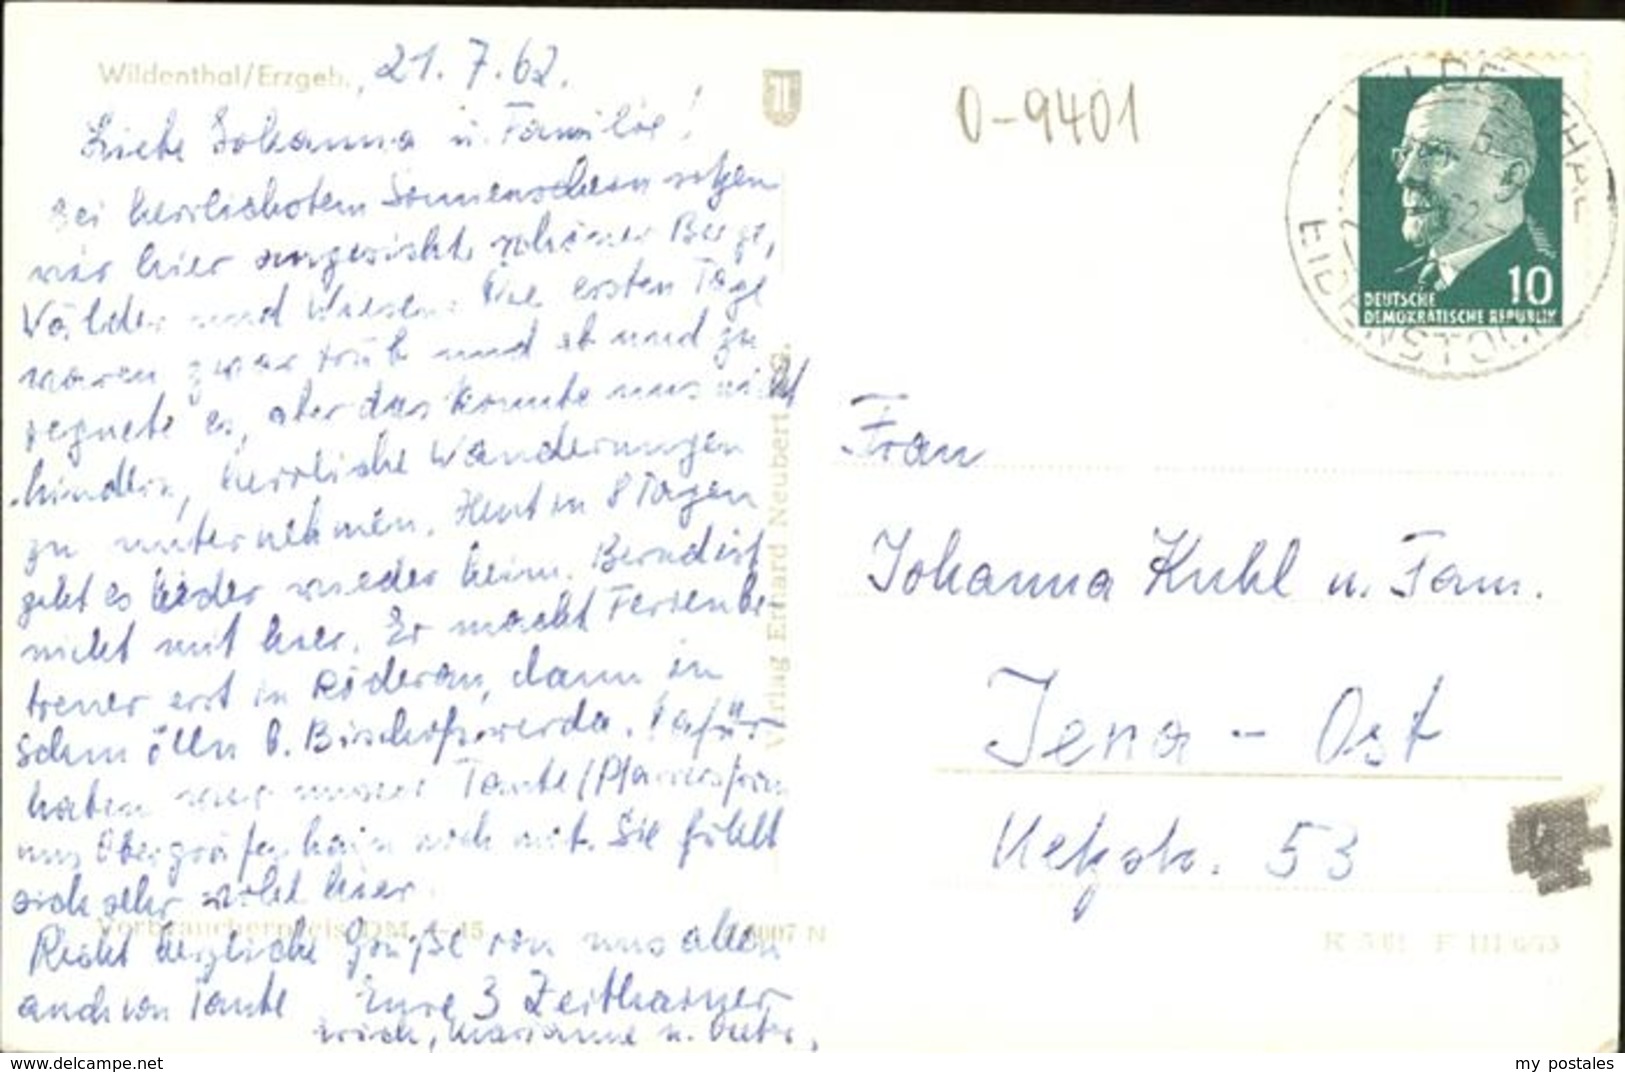 Wildenthal/Erzgeb., 21. 7. 62.
Liebe Johanna u. Familie!
Bei herrlichstem Sonnenschein sitzen
wir hier angesichts schöner Berge,
Wälder und Wiesen. Die ersten Tage
waren zwar trüb und ab und zu
regnete es, aber das konnte uns nicht
hindern, herrliche Wanderungen
zu unternehmen. Heut in 8 Tagen
geht es leider wieder heim. Bernd ist
nicht mit hier. Er macht Ferienbe-
treuer erst in Röderau, dann in
Schmölln b. Bischofswerda. Dafür
haben wir unsere Tante (Pfarrersfrau
aus Obergräfenhain noch mit. Sie fühlt
sich sehr wohl hier.
Verbraucherpreis DM
Recht herzliche Grüße von uns allen
auch von Tante Eure 3 Zeithainer
Erich, Marianne u. Peter.
Verlag Erhard Neubert
0-9401
WILDENTHAL
EIBENSTOCK
10
DEUTSCHE
DEMOKRATISCHE REPUBLIK
Frau
Johanna Kuhl u. Fam.
Jena - Ost
53
my postales